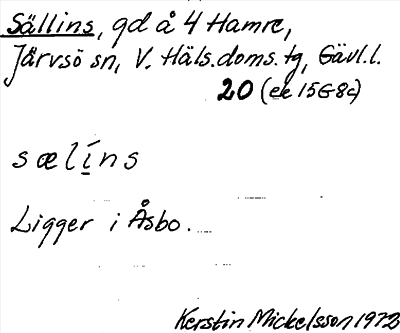 Sällins, gd å 4 Hamre,
Järvsö sn, V. Häls.doms.tg, Gävl.l.
20 (ek 15G8c)
sælíns
Ligger i Åsbo.
Kerstin Mickelsson 1972